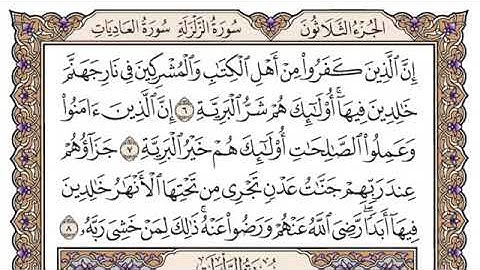 الجزء الثلاثون سورة الزلزلة سورة العاديات
إِنَّ الَّذِينَ كَفَرُوا مِنْ أَهْلِ الْكِتَابِ وَالْمُشْرِكِينَ فِي نَارِ جَهَنَّمَ
خَالِدِينَ فِيهَا ۚ أُولَٰئِكَ هُمْ شَرُّ الْبَرِيَّةِ ٦ إِنَّ الَّذِينَ ءَامَنُوا
وَعَمِلُوا الصَّالِحَاتِ أُولَٰئِكَ هُمْ خَيْرُ الْبَرِيَّةِ ٧ جَزَاؤُهُمْ
عِندَ رَبِّهِمْ جَنَّاتُ عَدْنٍ تَجْرِي مِن تَحْتِهَا الْأَنْهَارُ خَالِدِينَ
فِيهَا أَبَدًا ۖ رَّضِيَ اللَّهُ عَنْهُمْ وَرَضُوا عَنْهُ ۚ ذَٰلِكَ لِمَنْ خَشِيَ رَبَّهُ ٨